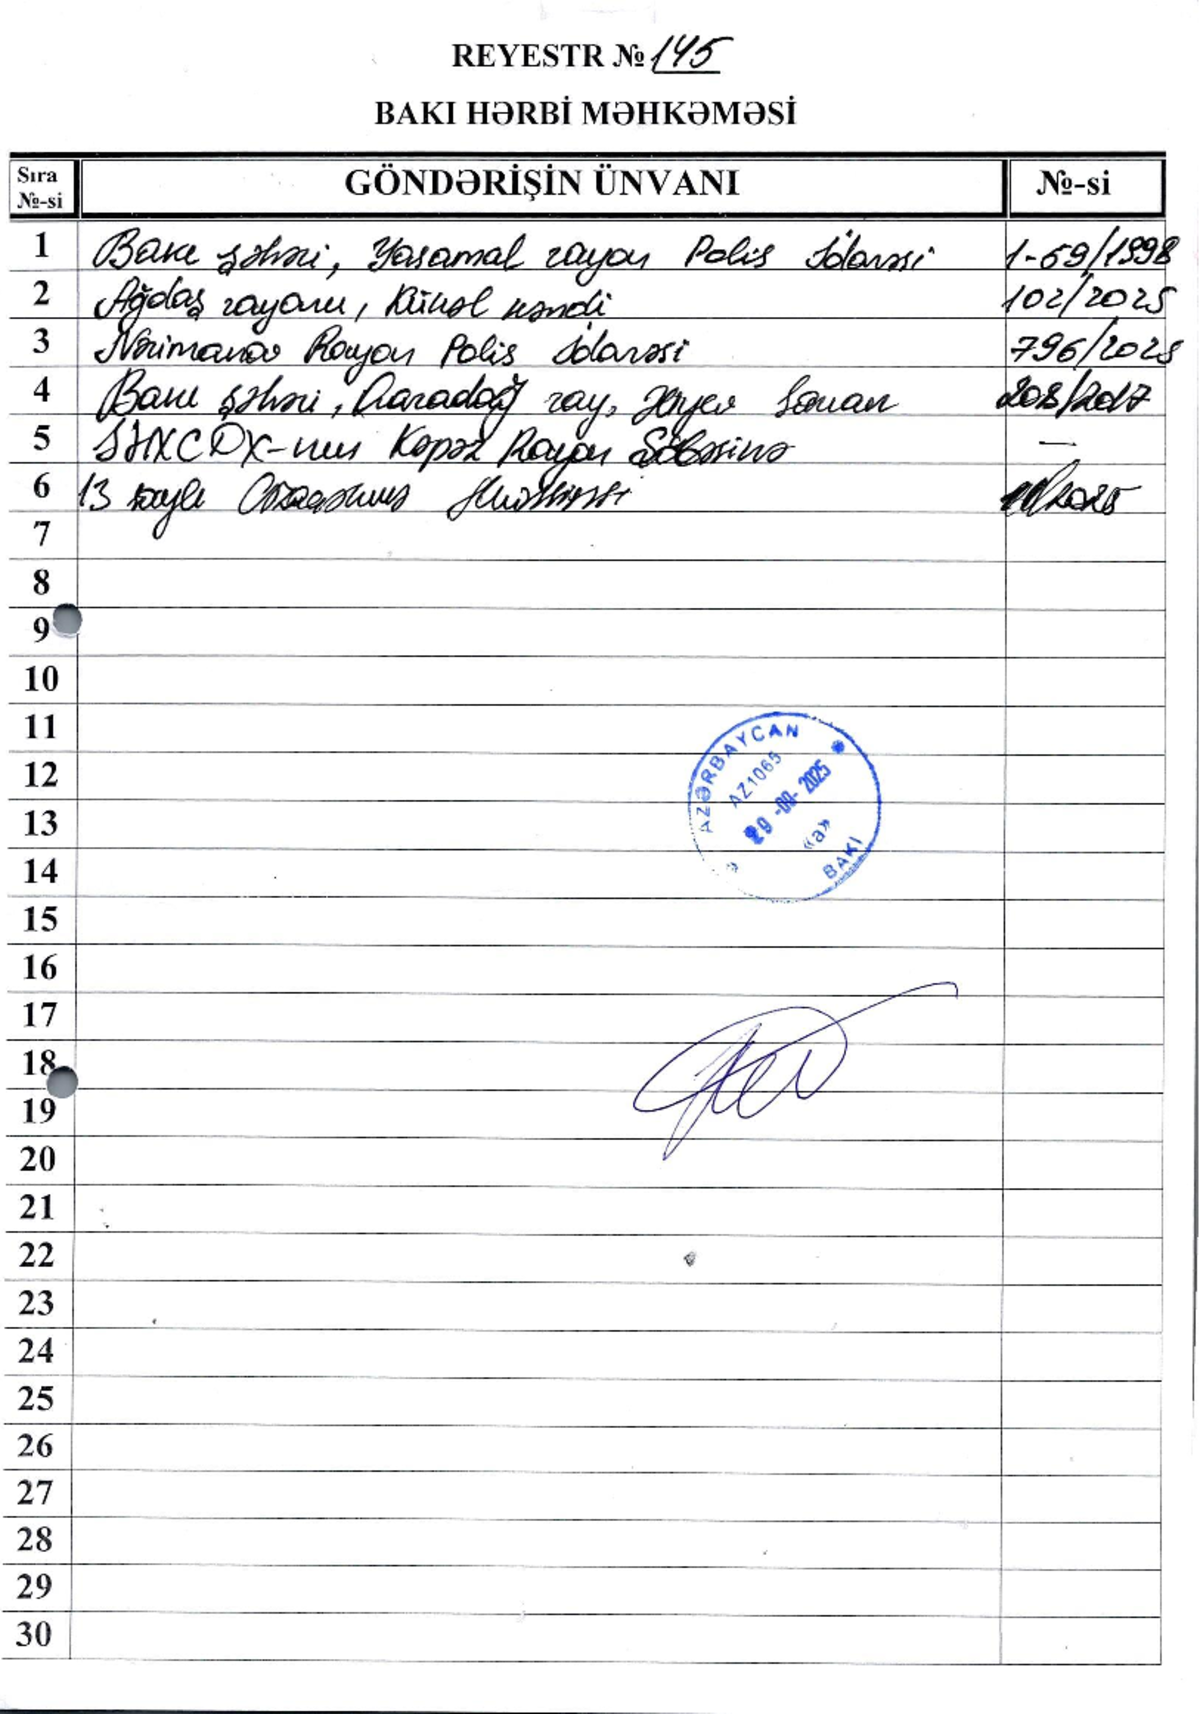 REYESTR № 145
BAKI HƏRBİ MƏHKƏMƏSİ
Sıra №-si GÖNDƏRİŞİN ÜNVANI №-si
1 Bakı şəhəri, Yasamal rayon Polis İdarəsi 1-59/1998
2 Ağdaş rayonu, kəndi 102/2025
3 Nərimanov Rayon Polis İdarəsi 796/2025
4 Bakı şəhəri, Qaradağ ray, 208/2017
5 Kəpəz Rayon Şöbəsinə —
6 13 saylı /2025
7
8
9
10
11
12
13
14
15
16
17
18
19
20
21
22
23
24
25
26
27
28
29
30
AZƏRBAYCAN
AZ1065
29-09-2025
«a»
BAKI